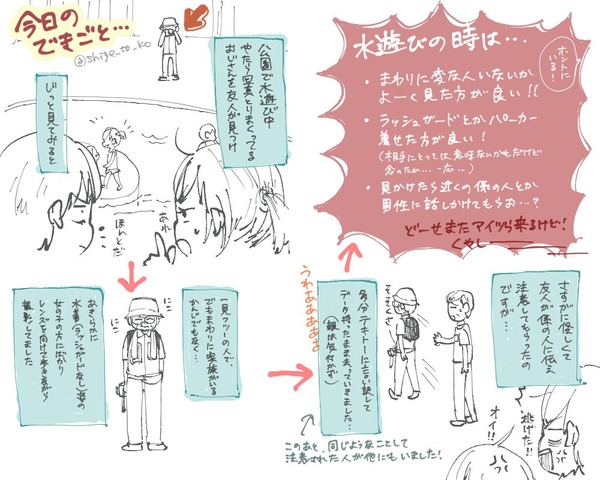 今日の
できごと…
@shige_to_ko
公園で水遊び中
やたら写真とりまくってる
おじさんを友人が見つけ
じっと見てみると
あれ
ほんとだ
一見フツーの人で
でもまわりに家族がいる
かんじでもなく…
あきらかに
水着(ラッシュガードなし)姿の
女の子の方にばかり
レンズを向けて歩き座がら
撮影してました
にこ
にこ
さすがに怪しくて
友人が係の人に伝え
注意してもらったの
ですが…
多分テキトーに言い訳して
データ持ったまま去っていきました…
(親は気付かず)
そそくさ
うわあああああ
逃げた!!
オイ!!
このあと、同じようなことして
注意された人が他にもいました!
水遊びの時は…
ホントに
いる!
・まわりに変な人いないか
よーく見た方が良い!!
・ラッシュガードとかパーカー
着せた方が良い!
(相手にとっては意味ないかもだけど
念のため…一応…)
・見かけたら近くの係の人とか
男性に話しかけてもらお…?
どーせまたアイツら来るけど!
くやしーーー